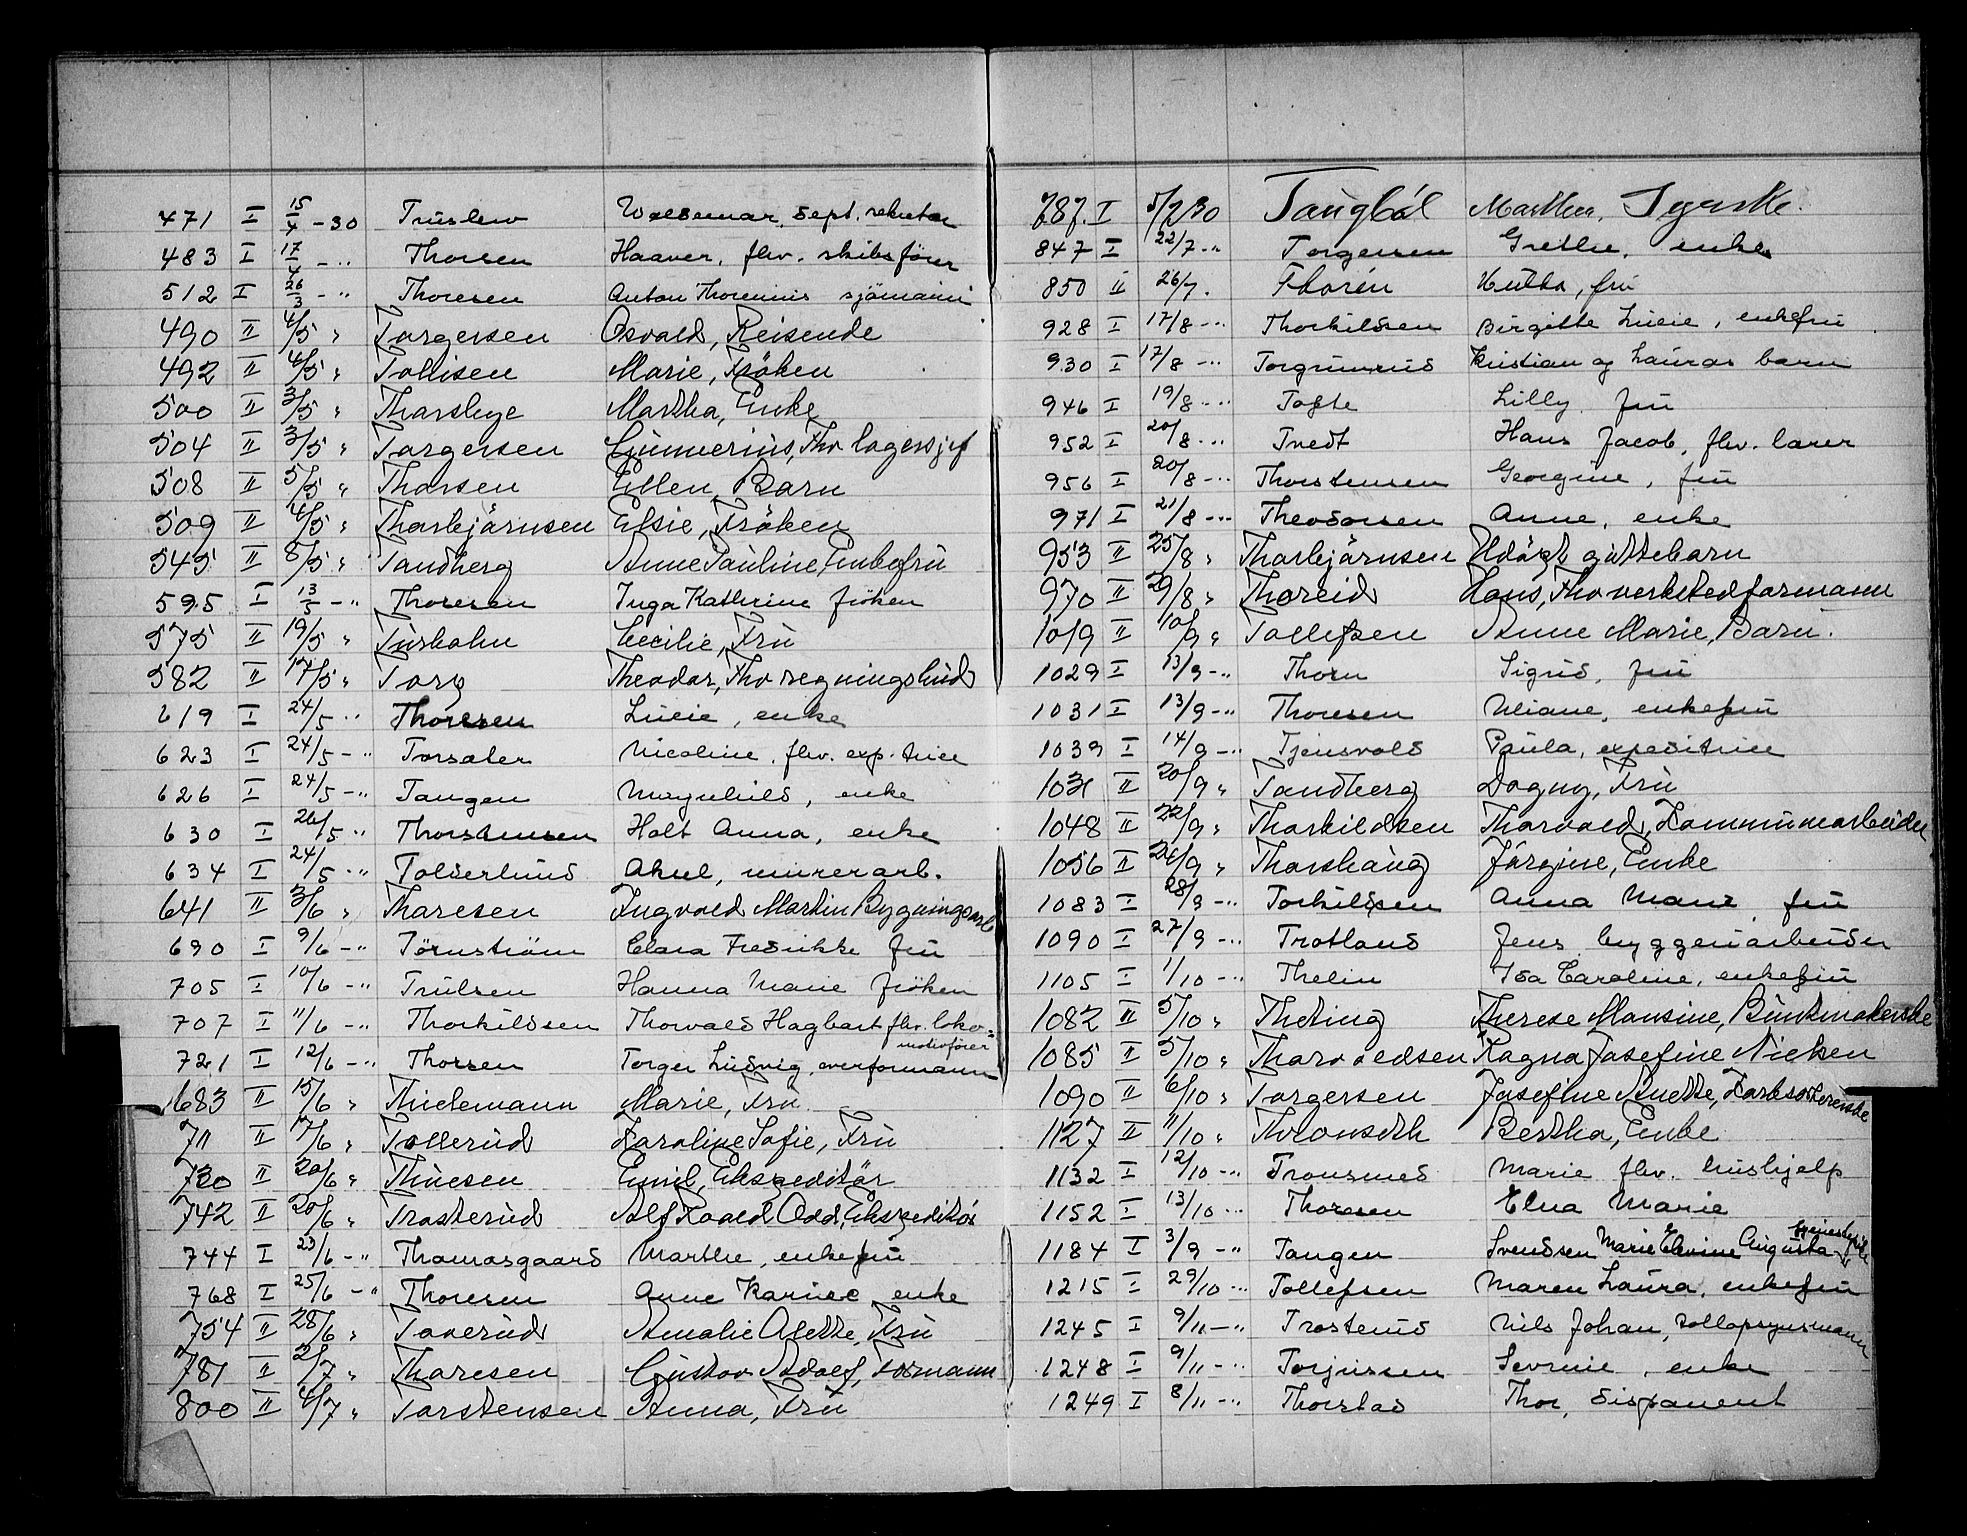 471 I 15/4 -30 Truslew Waldemar, sept. rekrutar
483 I 17/4 - " Thorsen Haaver, fhv. skibsfører
512 I 26/3 - " Thoresen Anton Thorenius sjömann
490 II 4/5 " Torgersen Osvald, Reisende
492 II 4/5 " Tollisen Marie, Fröken
500 II 3/5 " Thorshye Martha, Enke
504 II 3/5 " Torgersen Gunnerius, Fhv lagersjef
508 II 5/5 " Thorsen Ellen, Barn
509 II 4/5 " Thorbjörnsen Elsie, Fröken
545 II 8/5 " Tandberg Anne Pauline, Enkefru
595 I 13/5 - " Thoresen Inga Kathrine fröken
575 II 19/5 " Turholm Cecilie, Fru
582 II 17/5 " Torp Theodor, Fhv regningsbud
619 I 24/5 " Thoresen Lucie, enke
623 I 24/5 - " Torsater Nicoline, fhv. exp. trice
626 I 24/5 - " Tangen Magnhild, enke
630 I 26/5 " Thorstensen Holt Anna, enke
634 I 24/5 - " Tolderlund Aksel, murerarb.
641 II 3/6 " Thoresen Ingvald Martin Bygningsarb
690 I 9/6 - " Törnström Clara Fredrikke fru
705 I 10/6 - " Trulsen Hanna Marie fröken
707 I 11/6 - " Thorkildsen Thorvald Hagbart fhv. loko=
motivfører
721 I 12/6 - " Thorsen Torger Ludvig, overformann
683 II 15/6 " Thielemann Marie, Fru
711 II 17/6 " Tollerud Karoline Sofie, Fru
730 II 20/6 " Thuesen Emil, Ekspeditör
742 II 20/6 " Trosterud Alf Roald Odd, Ekspeditör
744 I 23/6 - " Thomasgaard Marthe, enkefru
768 I 25/6 - " Thoresen Anne Karine, enke
754 II 28/6 " Toverud Amalie Alette, Fru
781 II 2/7 " Thoresen Gustav Adolf, Formann
800 II 4/7 " Torstensen Anna, Fru
787 I 5/2 30 Taugböl Marthea, Syerske.
847 I 22/7 - " Torgersen Grethe, enke
850 II 26/7. Thorén Hulda, fru
928 I 17/8 - " Thorkildsen Birgitte Lucie, enkefru
930 I 17/8 - " Torgrimrud Kristian og Lauras barn
946 I 19/8 - " Tofte Lilly fru
952 I 20/8 - " Tvedt Hans Jacob, fhv. lærer
956 I 20/8 - " Thorstensen Georgine, fru
971 I 21/8 - " Theodorsen Anne, enke
953 II 25/8 " Thorbjörnsen Udöpt guttebarn
970 II 29/8 " Thoreid Hans, Fhv verkstedformann
1019 II 10/9 " Tollefsen Anne Marie, Barn.
1029 I 13/9 - " Thorn Sigrid, fru
1031 I 13/9 - " Thoresen Uliane, enkefru
1039 I 14/9 - " Tjensvold Paula, expeditrice
1031 II 20/9 " Tandberg Dagny, Fru
1048 II 22/9 " Thorkildsen Thorvald, Kommunearbeider
1056 II 24/9 " Thorshaug Jörgine, Enke
1083 I 28/9 - " Torkildsen Anna Marie fru
1090 I 27/9 - " Trotland Jens bryggeriarbeider
1105 I 1/10 - " Thelin Ida Caroline, enkefru
1082 II 5/10 " Theting Therese Mansine, Buntmakerske
1085 II 5/10 " Thorvaldsen Ragna Josefine Nielsen
1090 II 6/10 " Torgersen Josefine Anette, Korksorterske
1127 II 11/10 " Thronseth Bertha, Enke
1132 I 12/10 - " Tronsmed Marie fhv. hushjelp
1152 I 13/10 - " Thoresen Elna Marie
1184 I 3/9 - " Tangen Svendsen Marie Elvine Augusta
1215 I 29/10 - " Tollefsen Maren Laura, enkefru
1245 I 9/11 - " Trosterud Nils Johan, tollopsynsmann
1248 I 9/11 - " Torjussen Severine, enke
1249 I 8/11 - " Thorstad Thor, disponent